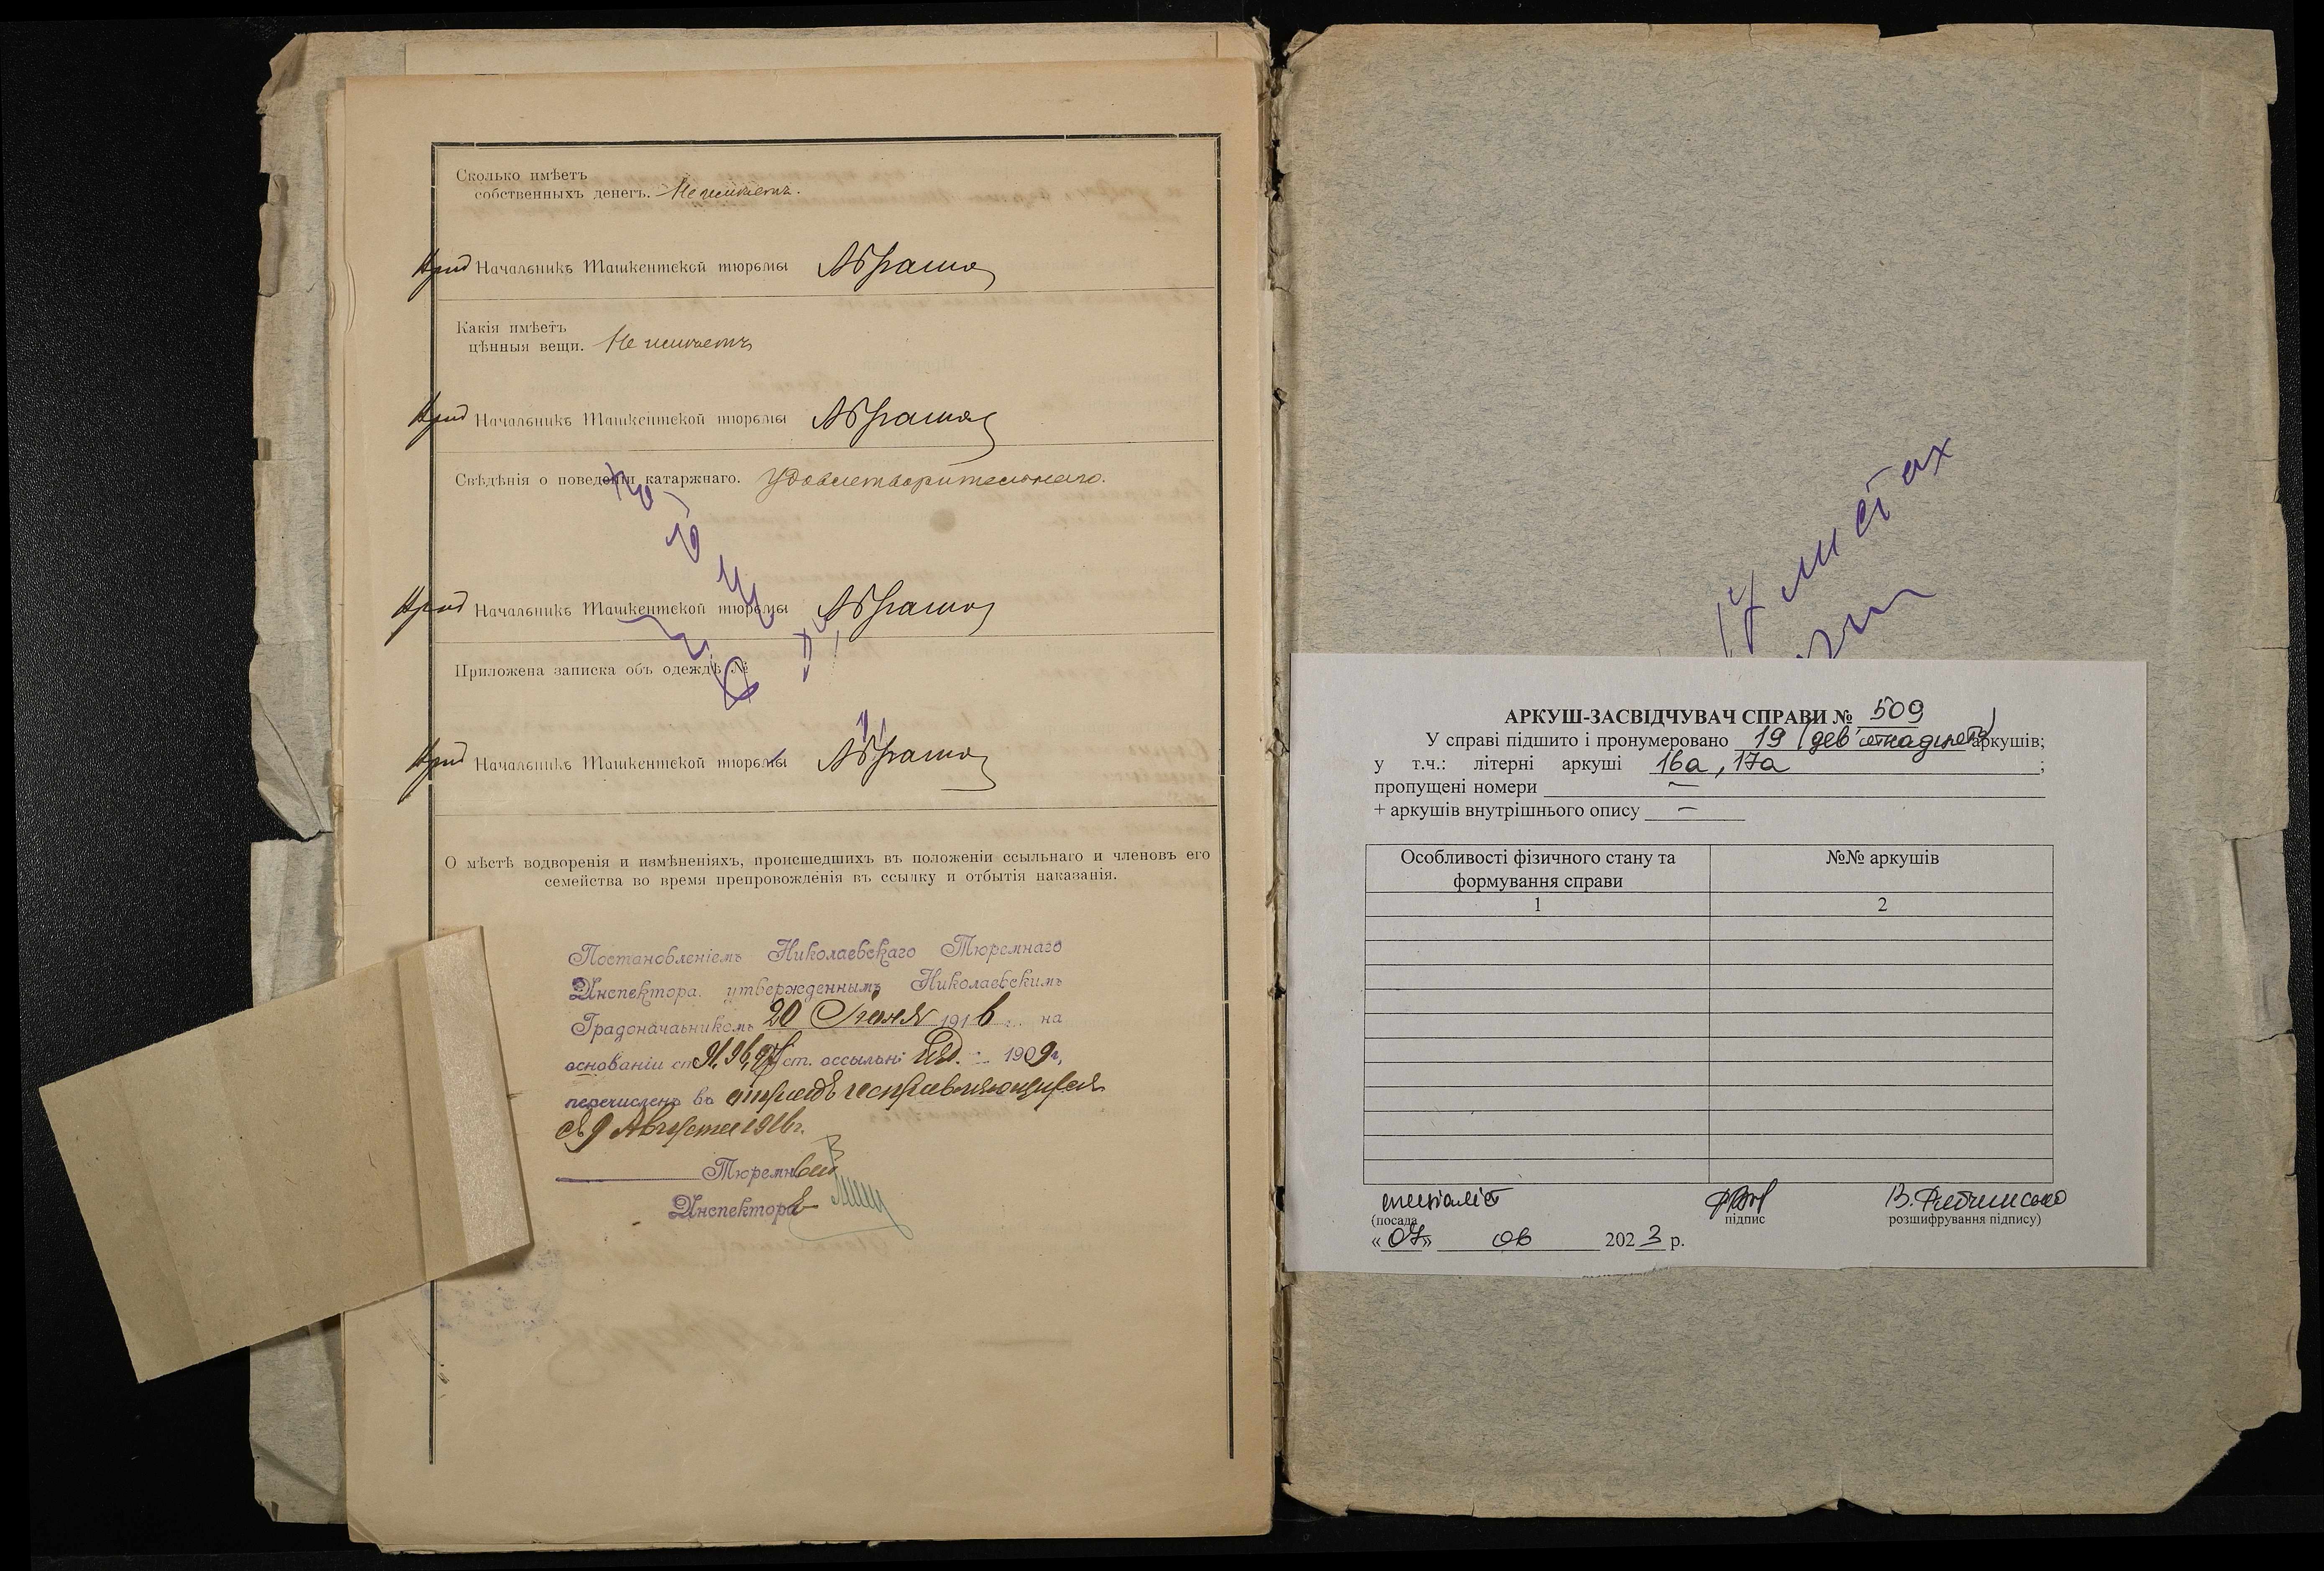 Сколько имѣетъ
собственныхъ денегъ. Не имѣетъ.
Начальникъ Ташкентской тюрьмы
Какія имѣетъ
цѣнныя вещи. Не имѣетъ
Начальникъ Ташкентской тюрьмы
Свѣдѣнія о поведеніи катаржнаго. Удовлетворительнаго.
Начальникъ Ташкентской тюрьмы
Приложена записка объ одеждѣ №
Начальникъ Ташкентской тюрьмы
О мѣстѣ водворенія и измѣненіяхъ, происшедшихъ въ положеніи ссыльнаго и членовъ его
семейства во время препровожденія въ ссылку и отбытія наказанія.
Постановленіемъ Николаевскаго Тюремнаго
Инспектора, утвержденнымъ Николаевскимъ
Градоначальникомъ 20 Іюня 1916 г. на
основаніи ст. 91, 96, 97 уст. о ссыльн. Изд. 1909 г.,
перечисленъ въ отрядъ исправляющихся
съ 9 Августа 1916 г.
Тюремный
Инспекторъ
17 листах
АРКУШ-ЗАСВІДЧУВАЧ СПРАВИ № 509
У справі підшито і пронумеровано 19 (дев'ятнадцять) аркушів;
у т.ч.: літерні аркуші 16а, 17а ;
пропущені номери —
+ аркушів внутрішнього опису —
Особливості фізичного стану та
формування справи
№№ аркушів
1 2
спеціаліст
(посада підпис розшифрування підпису)
«07» 06 2023 р.